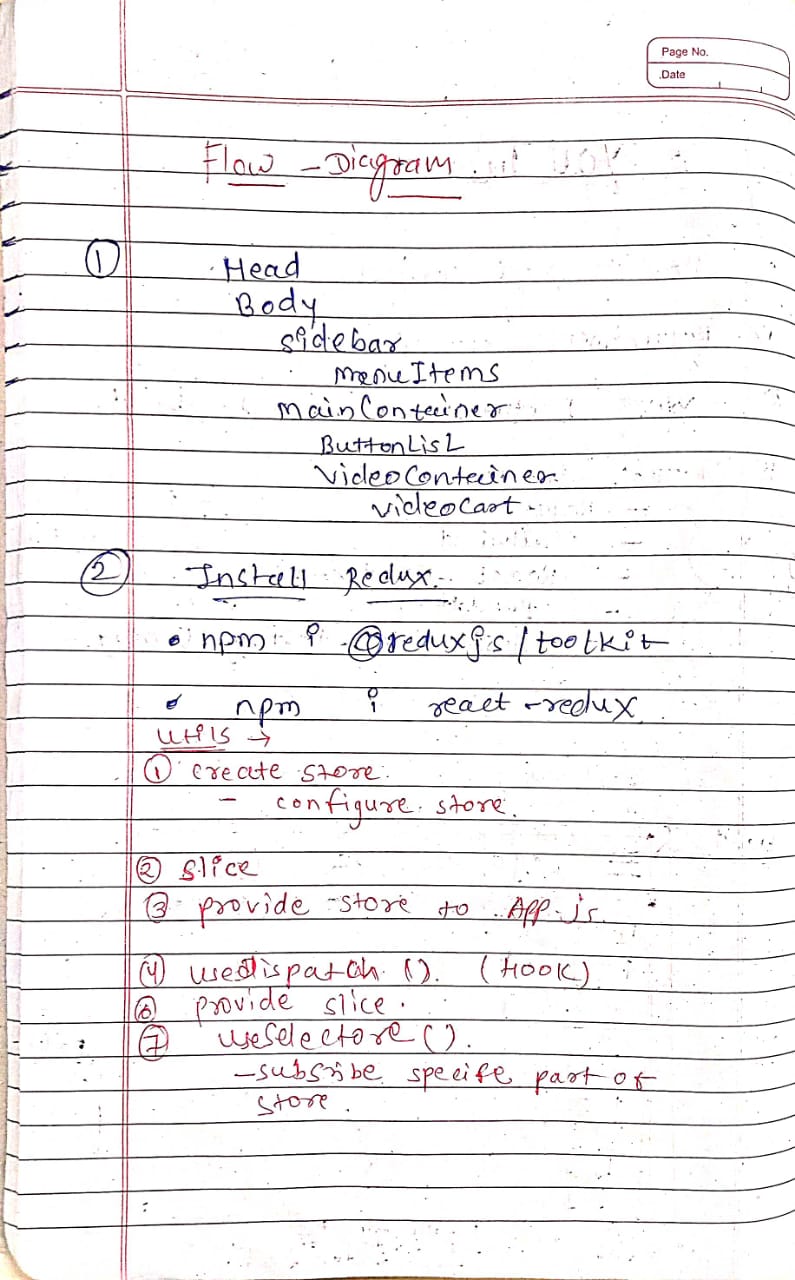 Page No.
Date
Flow - Diagram.
① Head
Body
Sidebar
MenuItems
MainContainer
ButtonList
VideoContainer
videoCart
② Install Redux
• npm i @reduxjs/toolkit
• npm i react-redux
Utils →
① create store.
- configure store.
② slice
③ provide store to App.js
④ usedispatch (). (HOOK)
⑥ provide slice.
⑦ useSelectore ().
- subsribe specife part of
store.